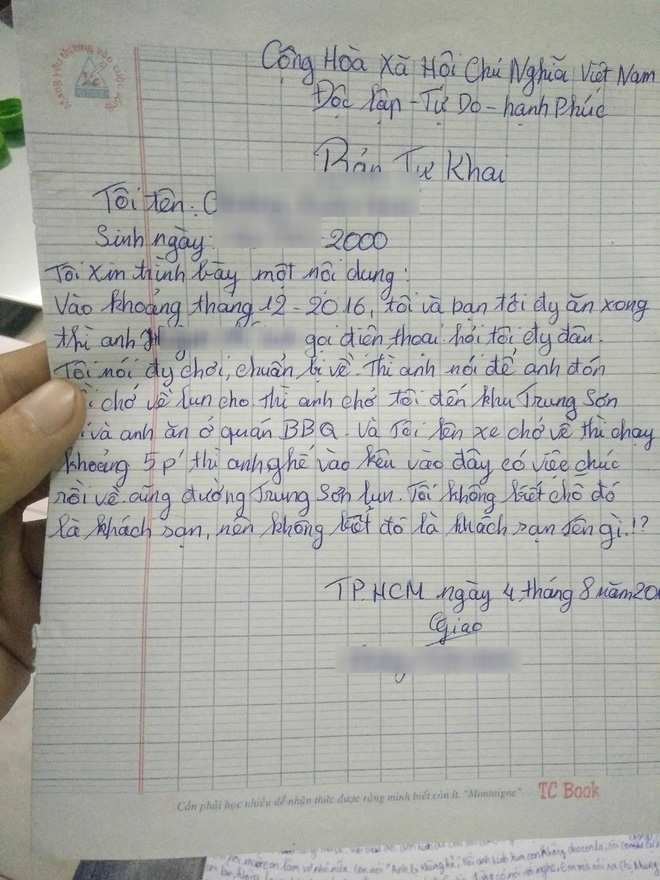 Mang yêu thương vào cuộc sống
Cộng Hoà Xã Hội Chủ Nghĩa Việt Nam
Độc lập - Tự Do - hạnh Phúc
Bản Tự Khai
Tôi tên: C
Sinh ngày: 2000
Tôi xin trình bày một nội dung:
Vào khoảng tháng 12 - 2016, tôi và bạn tôi đy ăn xong
thì anh H gọi điện thoại hỏi tôi đy đâu.
Tôi nói đy chơi, chuẩn bị về. Thì anh nói để anh đón
chở về lun cho. thì anh chở tôi đến khu Trung Sơn
và anh ăn ở quán BBQ. Và Tôi lên xe chở về thì chạy
khoảng 5p' thì anh ghé vào kêu vào đây có việc chúc
rồi về. cũng đường Trung Sơn lun. Tôi không biết chỗ đó
là khách sạn, nên không biết đó là khách sạn tên gì.!?
TP. HCM ngày 4 tháng 8 năm 20
Giao
Cần phải học nhiều để nhận thức được rằng mình biết còn ít. "Montaigne" TC Book